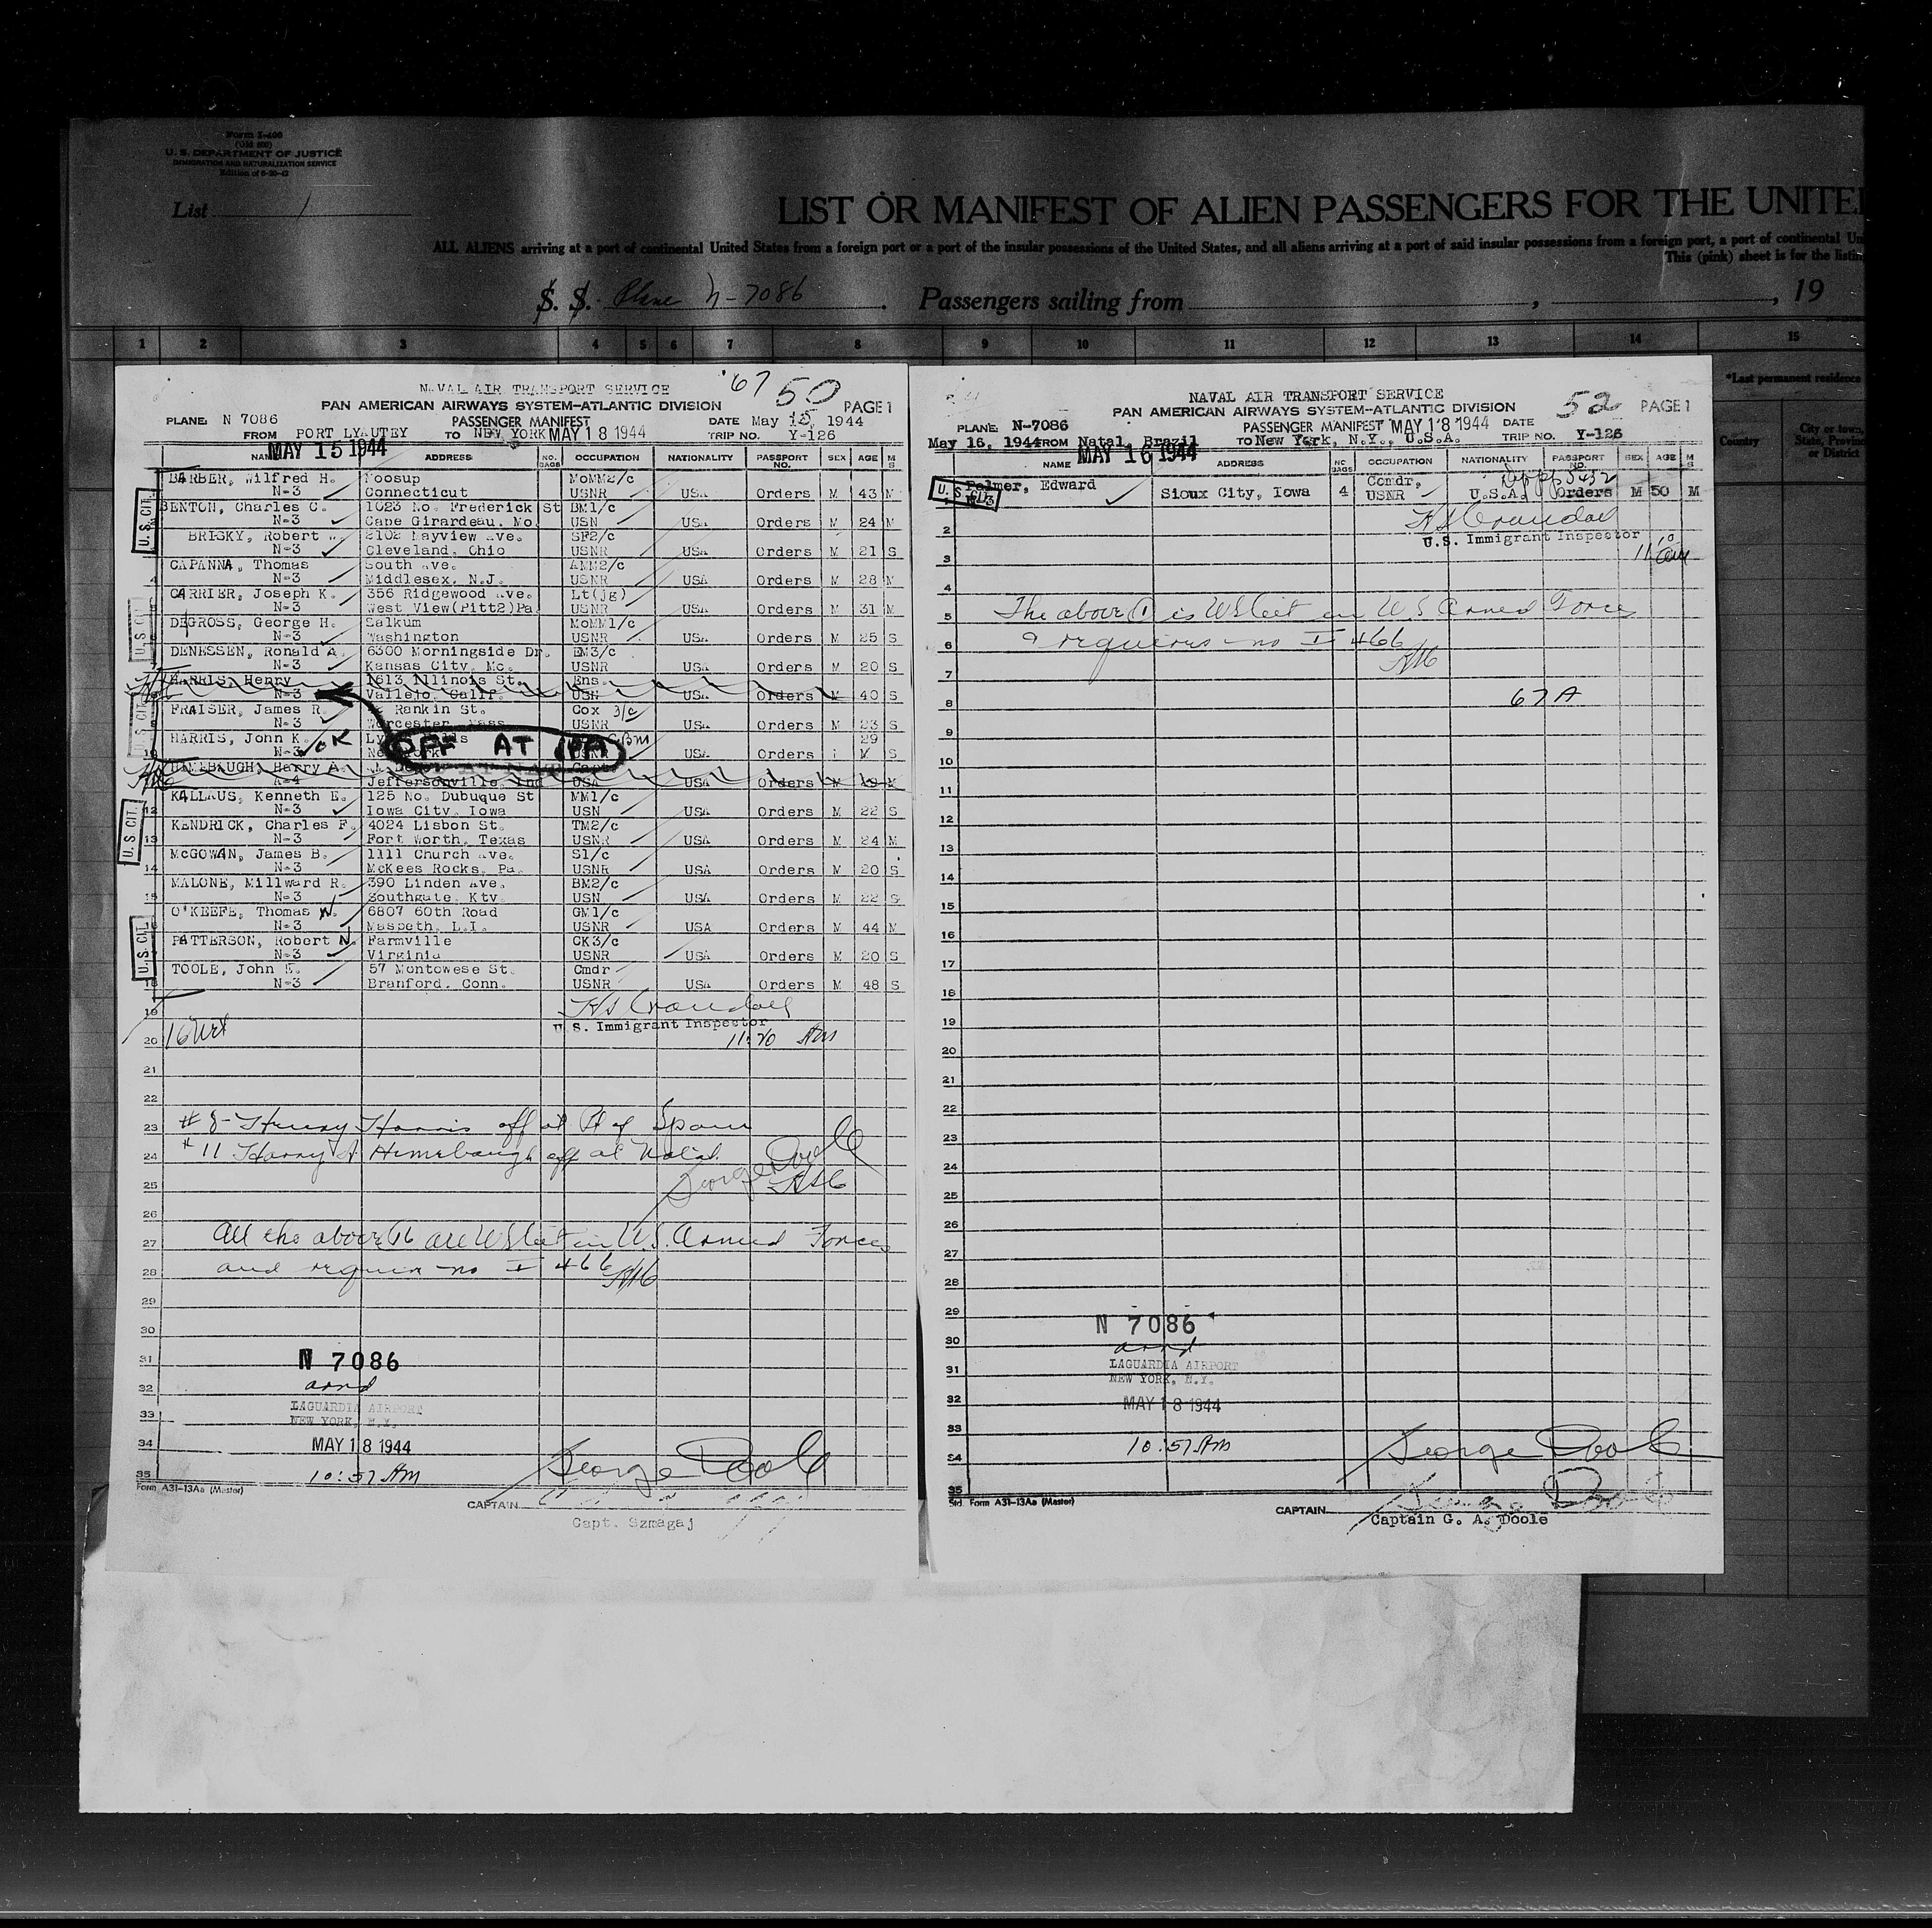 Form I-400
(Old 500)
U. S. DEPARTMENT OF JUSTICE
IMMIGRATION AND NATURALIZATION SERVICE
Edition of 6-30-43
List 1
LIST OR MANIFEST OF ALIEN PASSENGERS FOR THE UNITE
ALL ALIENS arriving at a port of continental United States from a foreign port or a port of the insular possessions of the United States, and all aliens arriving at a port of said insular possessions from a foreign port, a port of continental Un
This (pink) sheet is for the listin
S. S. Plane N-7086 . Passengers sailing from , , 19
1 2 3 4 5 6 7 8 9 10 11 12 13 14 15
*Last permanent residence
Country
City or town, State, Provinc or District
NAVAL AIR TRANSPORT SERVICE '67 50
PAN AMERICAN AIRWAYS SYSTEM—ATLANTIC DIVISION PAGE 1
PLANE: N 7086 PASSENGER MANIFEST DATE May 15, 1944
FROM PORT LYAUTEY TO NEW YORK MAY 18 1944 TRIP NO. Y-126
MAY 15 1944
NAME ADDRESS NO. BAGS OCCUPATION NATIONALITY PASSPORT NO. SEX AGE M S
BARBER, Wilfred H. Moosup MoMM2/c
N-3 Connecticut USNR USA Orders M 43 M
BENTON, Charles C. 1023 No. Frederick St BM1/c
N-3 Cape Girardeau, Mo. USN USA Orders M 24 M
BRISKY, Robert W. 2102 Mayview Ave. SF2/c
N-3 Cleveland, Ohio USNR USA Orders M 21 S
CAPANNA, Thomas South Ave. AMM2/c
4 N-3 Middlesex, N.J. USNR USA Orders M 28 M
CARRIER, Joseph K. 356 Ridgewood Ave. Lt(jg)
N-3 West View(Pitt2)Pa. USNR USA Orders M 31 M
DEGROSS, George H. Salkum MoMM1/c
N-3 Washington USNR USA Orders M 25 S
DENESSEN, Ronald A. 6300 Morningside Dr. EM3/c
N-3 Kansas City, Mo. USNR USA Orders M 20 S
HARRIS, Henry 1613 Illinois St. Ens.
N-3 Vallejo, Calif. USN USA Orders M 40 S
FRAISER, James R. Rankin St. Cox 3/c
N-3 Worcester, Mass USNR USA Orders M 23 S
HARRIS, John K. OK
10 N-3 USA Orders 29
OFF AT
HIMEBAUGH, Harry A. Capt.
N-4 Jeffersonville, Ind USA USA Orders M 49 M
KALLAUS, Kenneth E. 125 No. Dubuque St MM1/c
12 N-3 Iowa City, Iowa USN USA Orders M 22 S
KENDRICK, Charles F. 4024 Lisbon St. TM2/c
13 N-3 Fort Worth, Texas USNR USA Orders M 24 M
McGOWAN, James B. 1111 Church Ave. S1/c
14 N-3 McKees Rocks, Pa. USNR USA Orders M 20 S
MALONE, Millward R. 390 Linden Ave. BM2/c
15 N-3 Southgate, Kty. USN USA Orders M 22 S
O'KEEFE, Thomas W. 6807 60th Road GM1/c
N-3 Maspeth, L.I. USNR USA Orders M 44 M
PATTERSON, Robert N. Farmville CK3/c
N-3 Virginia USNR USA Orders M 20 S
TOOLE, John E. 57 Montowese St. Cmdr
18 N-3 Branford, Conn. USNR USA Orders M 48 S
U.S. CIT.
U.S. CIT.
U.S. CIT.
U.S. CIT.
U.S. CIT.
19 HS Crandall
U. S. Immigrant Inspector
20 11:20 AM
21
22
23 # 8- Henry Harris off at Pt of Spain
24 # 11 Harry A. Himebaugh off at Natal.
25 George Doole HSC
26
27 All the above 16 are US Cit in U.S. Armed Forces
28 and require no I 466 HSC
29
30
31 N 7086
32 arrd
33 LAGUARDIA AIRPORT
NEW YORK, N.Y.
34 MAY 18 1944
35 10:57 AM George Doole
Form A31-13Aa (Master)
CAPTAIN
Capt. Szmagaj
NAVAL AIR TRANSPORT SERVICE 52
PAN AMERICAN AIRWAYS SYSTEM—ATLANTIC DIVISION PAGE 1
PLANE N-7086 PASSENGER MANIFEST MAY 18 1944 DATE
May 16, 1944 FROM Natal, Brazil TO New York, N.Y., U.S.A. TRIP NO. Y-126
MAY 16 1944
NAME ADDRESS NO BAGS OCCUPATION NATIONALITY PASSPORT NO. SEX AGE M S
U. S. CIT.
Palmer, Edward Comdr,
1 N-3 Sioux City, Iowa 4 USNR U.S.A. Orders M 50 M
2 HS Crandall
U.S. Immigrant Inspector
3
4
5 The above (1) is US Cit in U.S Armed Force
6 & requires no I 466
7 HSC
8 67 A
9
10
11
12
13
14
15
16
17
18
19
20
21
22
23
24
25
26
27
28
29
30 N 7086
arrd
31 LAGUARDIA AIRPORT
NEW YORK, N.Y.
32 MAY 18 1944
33
34 10:57 AM George Doole
35
Std. Form A31-13Aa (Master)
CAPTAIN George Doole
Captain G. A. Doole